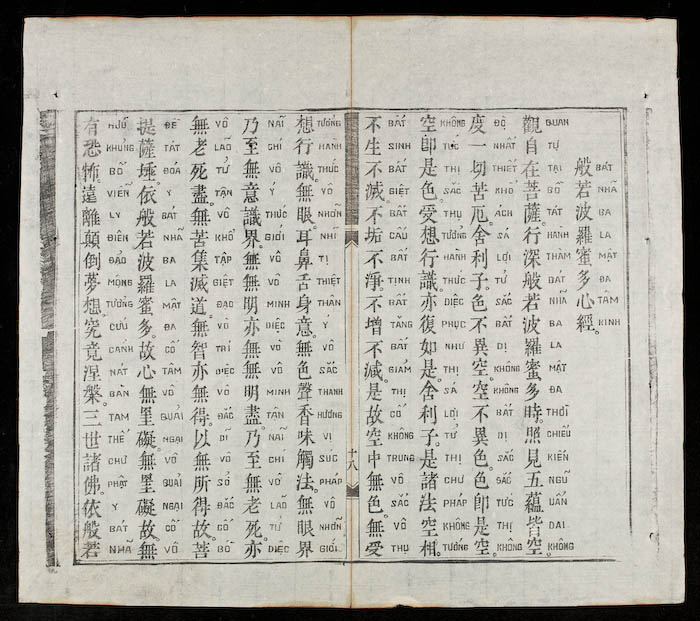 般若波羅蜜多心經。
BÁT NHÃ BA LA MẬT ĐA TÂM KINH
觀自在菩薩。行深般若波羅蜜多時。照見五蘊皆空。
QUAN TỰ TẠI BỒ TÁT HÀNH THÂM BÁT NHÃ BA LA MẬT ĐA THỜI CHIẾU KIẾN NGŨ UẨN DAI KHÔNG
度一切苦厄。舍利子。色不異空。空不異色。色即是空。
ĐỘ NHẤT THIẾT KHỔ ÁCH SÁ LỢI TỬ SẮC BẤT DỊ KHÔNG KHÔNG BẤT DỊ SẮC SẮC TỨC THỊ KHÔNG
空即是色。受想行識。亦復如是。舍利子。是諸法空相。
KHÔNG TỨC THỊ SẮC THỤ TƯỞNG HÀNH THỨC DIỆC PHỤC NHƯ THỊ SÁ LỢI TỬ THỊ CHƯ PHÁP KHÔNG TƯỚNG
不生不滅。不垢不淨。不增不減。是故空中無色。無受
BẤT SINH BẤT DIỆT BẤT CẤU BẤT TỊNH BẤT TĂNG BẤT GIẢM THỊ CỐ KHÔNG TRUNG VÔ SẮC VÔ THỤ
十八
想行識。無眼耳鼻舌身意。無色聲香味觸法。無眼界
TƯỞNG HÀNH THỨC VÔ NHỠN NHĨ TỊ THIỆT THÂN Ý VÔ SẮC THANH HƯƠNG VỊ SÚC PHÁP VÔ NHỠN GIỚI
乃至無意識界。無無明亦無無明盡。乃至無老死。亦
NÃI CHÍ VÔ Ý THỨC GIỚI VÔ VÔ MINH DIỆC VÔ VÔ MINH TẬN NÃI CHÍ VÔ LÃO TỬ DIỆC
無老死盡。無苦集滅道。無智亦無得。以無所得故。菩
VÔ LÃO TỬ TẬN VÔ KHỔ TẬP DIỆT ĐẠO VÔ TRÍ DIỆC VÔ ĐẮC DĨ VÔ SỞ ĐẮC CỐ BỒ
提薩埵。依般若波羅蜜多。故心無罣礙。無罣礙故。無
ĐỀ TÁT ĐÓA Y BÁT NHÃ BA LA MẬT ĐA CỐ TÂM VÔ QUẢI NGẠI VÔ QUẢI NGẠI CỐ VÔ
有恐怖。遠離顛倒夢想。究竟涅槃。三世諸佛。依般若
HỮU KHỦNG BỐ VIỄN LY ĐIÊN ĐẢO MỘNG TƯỞNG CỨU CÁNH NÁT BÀN TAM THẾ CHƯ PHẬT Y BÁT NHÃ